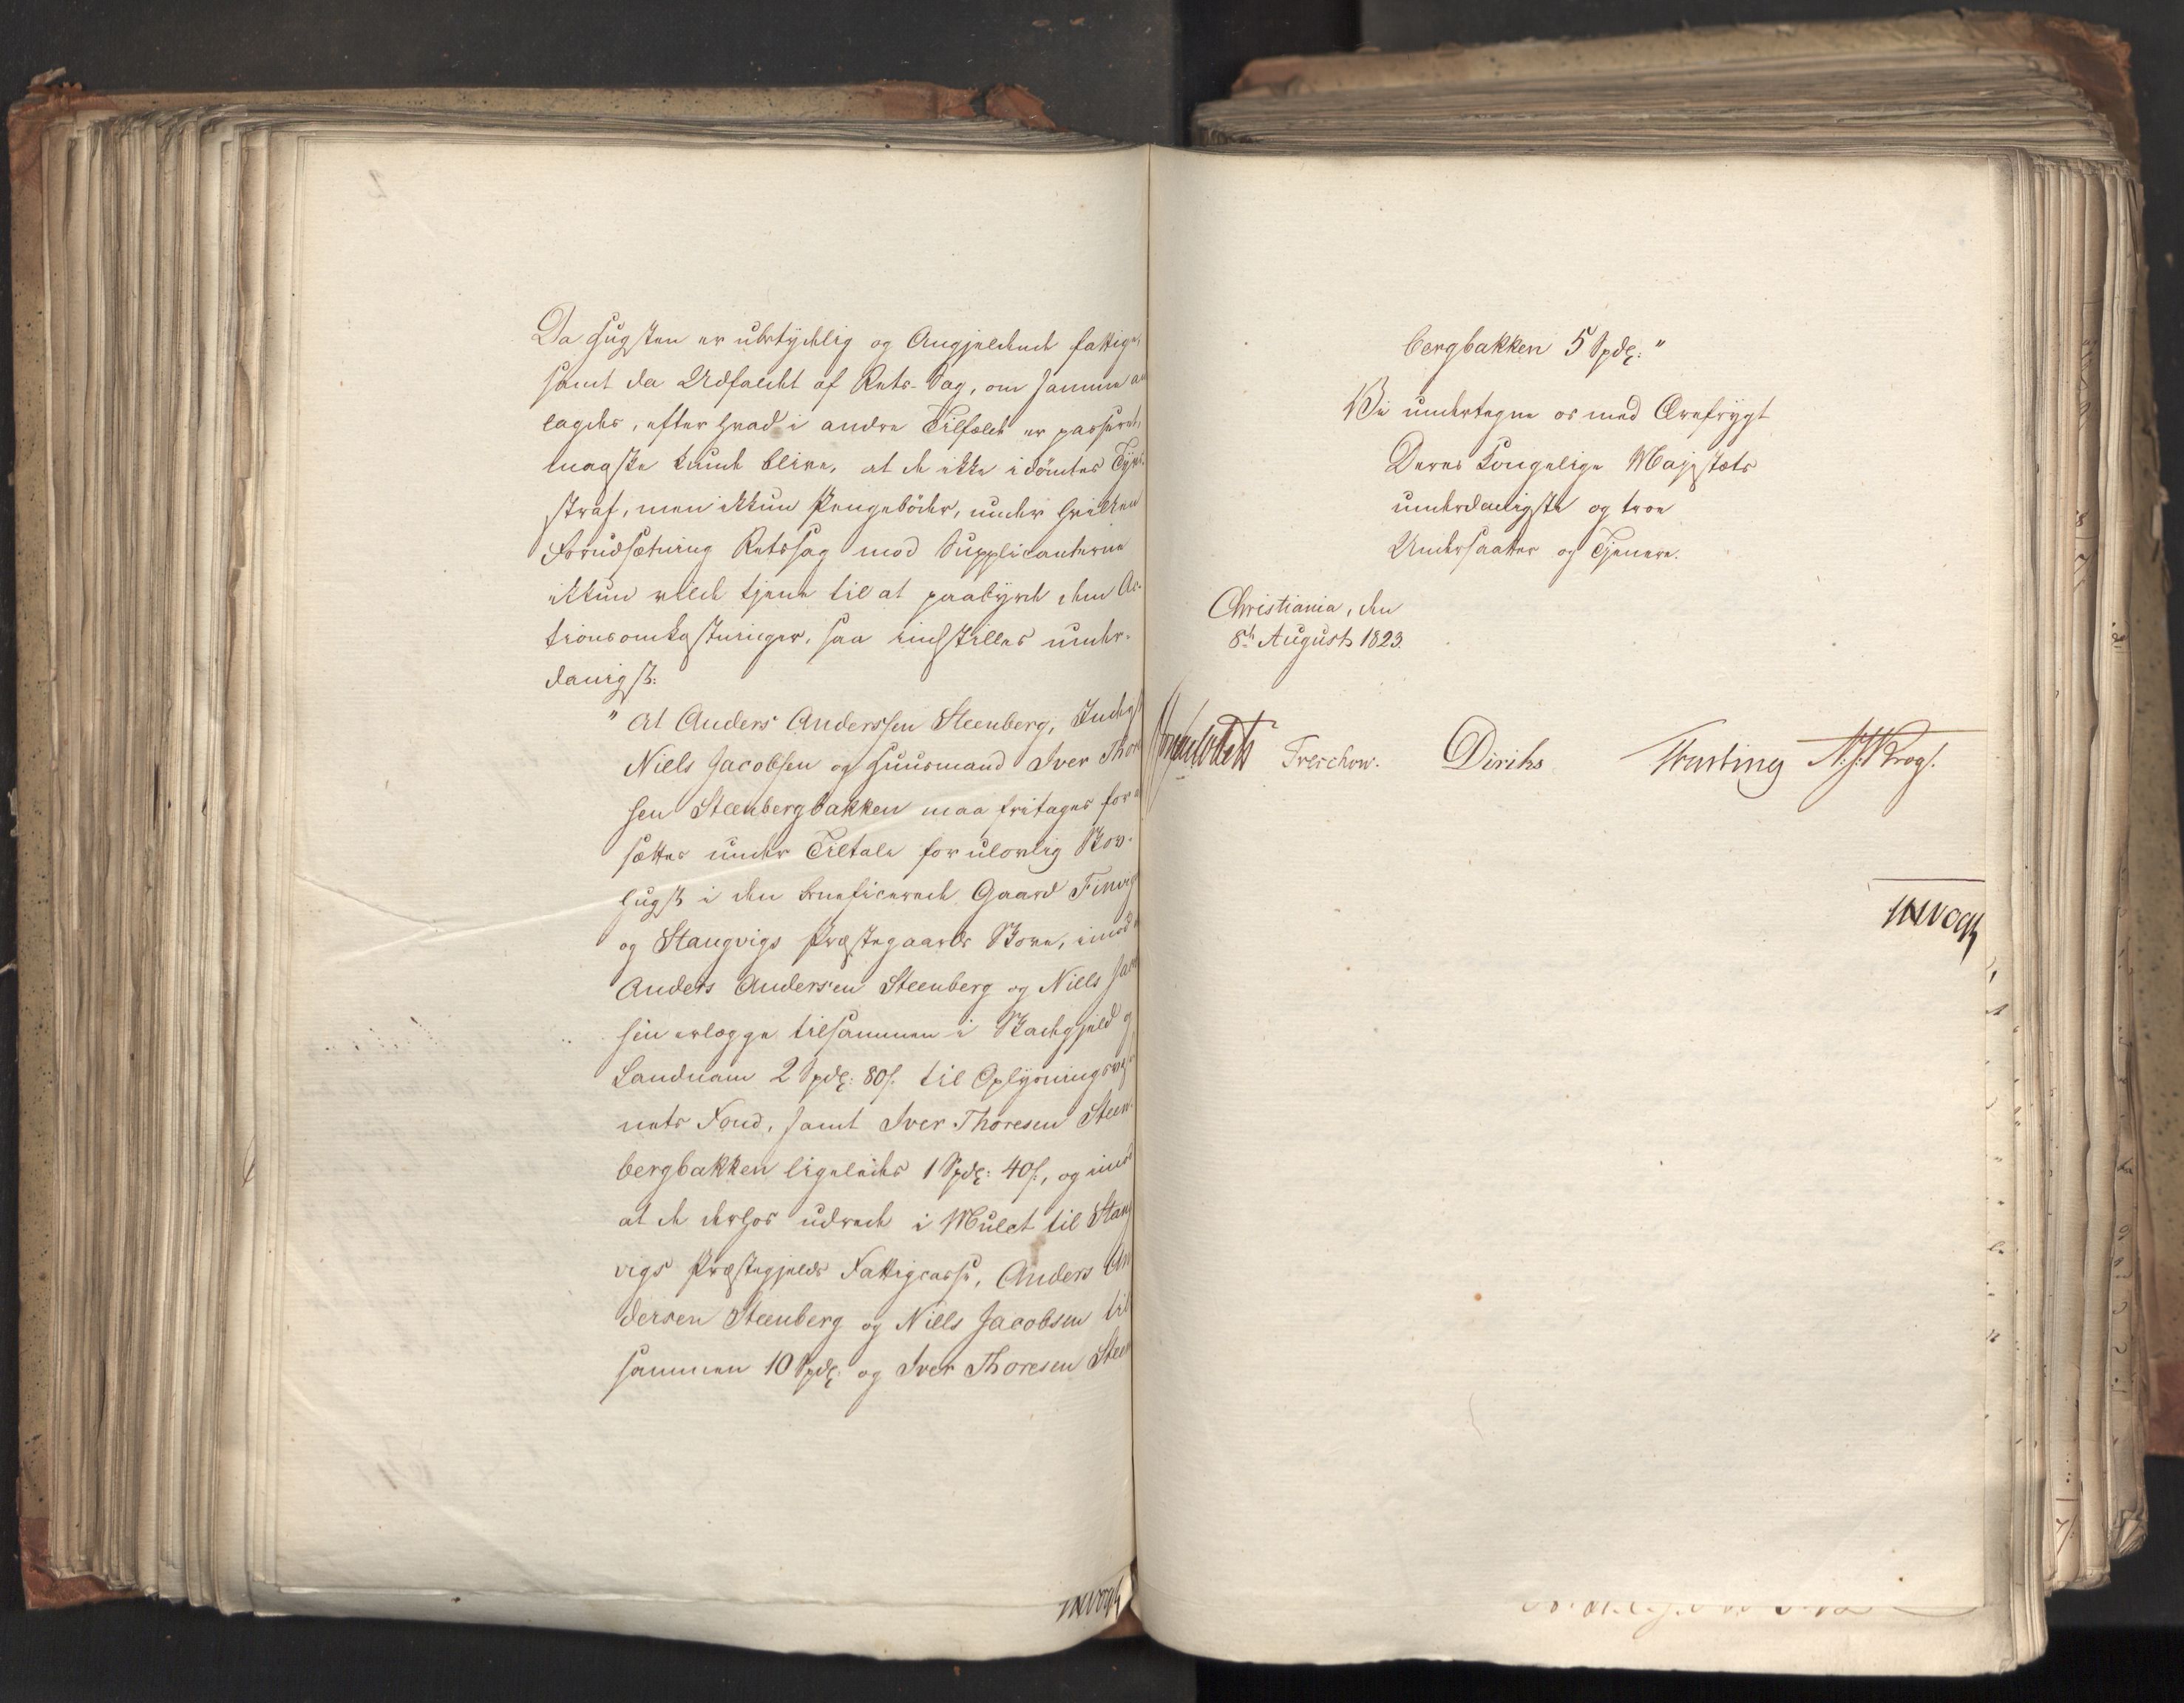 Da Hugsten er ubetydelig og Angjeldende fattige,
samt da Udfaldet af Rets-Sag, om samme an-
lagdes, efter hvad i andre Tilfælde er passeret,
maaske kunde blive, at de ikke idömtes Tyvs-
straf, men ikkun Pengeböder, under hvilken
Forudsætning Retssag mod Supplicanterne
ikkun vilde tjene til at paabyrde dem Ac-
tionsomkostninger, saa indstilles under-
danigst:
"At Anders Anderssen Steenberg, Inderst
Niels Jacobsen og Huusmand Iver Thore-
sen Steenbergbakken maa fritages for at
sættes under Tiltale for ulovlig Skov-
hugst i den beneficerede Gaard
og Stangvigs Præstegaards Skove, imod at
Anders Andersen Steenberg og Niels Jacob-
sen erlægge tilsammen i Skadegjeld og
Landnam 2 Spdlr: 80 s. til Oplysningsvæs-
nets Fond, samt Iver Thoresen Steen-
bergbakken ligeledes 1 Spdlr: 40 s., og imod
at de derhos udrede i Mulct til Stang-
vigs Præstegjelds Fattigcasse, Anders An-
dersen Steenberg og Niels Jacobsen til-
sammen 10 Spdlr: og Iver Thoresen Steen-
bergbakken 5 Spdlr:"
Vi undertegne os med Ærefrygt
Deres Kongelige Majestæts
underdanigste og troe
Undersaatter og Tjenere.
Christiania, den
8de August 1823.
Treschow. Diriks Krogh.